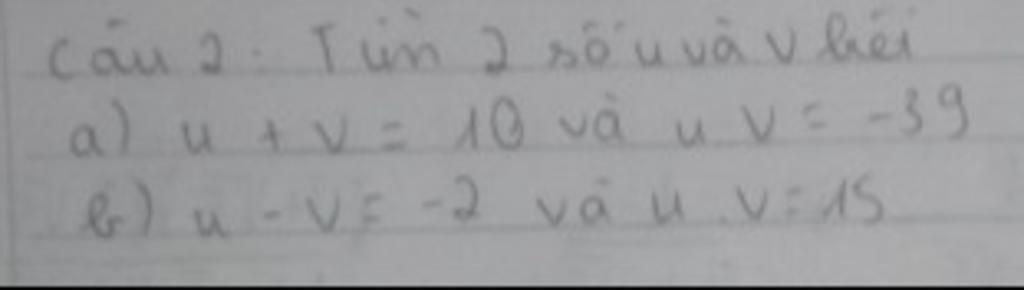 Câu 2: Tìm 2 số u và v biết
a) u + v = 10 và u v = -39
b) u - v = -2 và u . v = 15